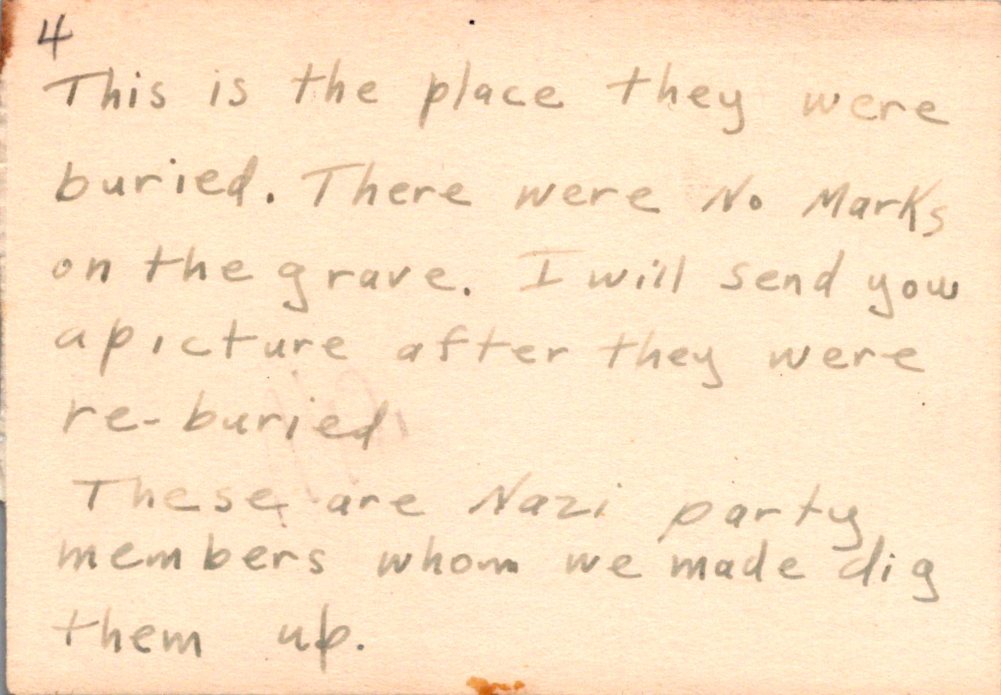 4
This is the place they were
buried. There were No Marks
on the grave. I will send you
a picture after they were
re-buried
These are Nazi party
members whom we made dig
them up.